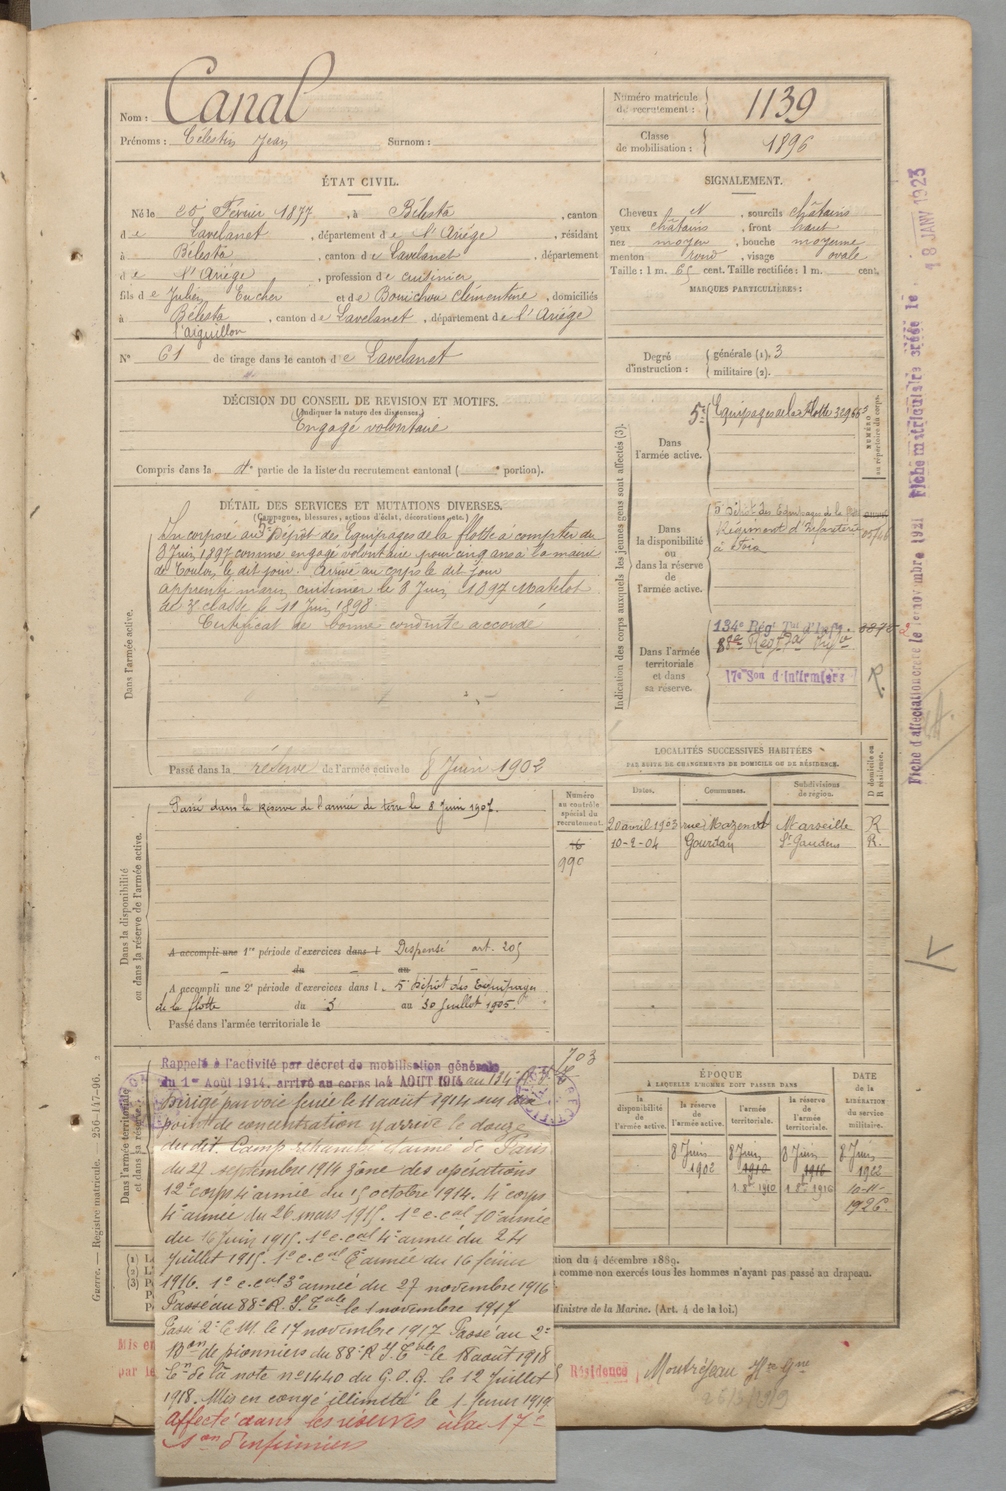 Nom : Canal
Prénoms : Célestin Jean Surnom :
Numéro matricule de recrutement : 1139
Classe de mobilisation : 1896
ÉTAT CIVIL.
Né le 20 Février 1877, à Bélesta, canton
de Lavelanet, département de l'Ariège, résidant
à Bélesta, canton de Lavelanet, département
de l'Ariège, profession de cuisinier
fils de Julien Eucher et de Bonichou Clémentine, domiciliés
à Bélesta, canton de Lavelanet, département de l'Ariège
l'aiguillon
N° 61 de tirage dans le canton de Lavelanet
SIGNALEMENT.
Cheveux N, sourcils châtains
yeux châtains, front haut
nez moyen, bouche moyenne
menton rond, visage ovale
Taille : 1 m. 65 cent. Taille rectifiée : 1 m. cent.
MARQUES PARTICULIÈRES :
Degré d'instruction : générale (1). 3
militaire (2).
DÉCISION DU CONSEIL DE REVISION ET MOTIFS.
(Indiquer la nature des dispenses.)
Engagé volontaire
Compris dans la 4e partie de la liste du recrutement cantonal ( e portion).
DÉTAIL DES SERVICES ET MUTATIONS DIVERSES.
(Campagnes, blessures, actions d'éclat, décorations, etc.)
Dans l'armée active.
Incorporé au 5e Dépôt des Equipages de la flotte à compter du
8 Juin 1897 comme engagé volontaire pour cinq ans à la mairie
de Toulon, le dit jour. Arrivé au corps le dit jour
apprenti marin cuisinier le 8 Juin 1897 Matelot
de 3e classe le 11 Juin 1898.
Certificat de bonne conduite accordé
Passé dans la réserve de l'armée active le 8 Juin 1902
Indication des corps auxquels les jeunes gens sont affectés (3).
NUMÉRO au répertoire du corps.
Dans l'armée active.
5e Equipages de la Flotte
Dans la disponibilité ou dans la réserve de l'armée active.
5e Dépôt des Equipages de la flotte
Régiment d'Infanterie
à Foix
Dans l'armée territoriale et dans sa réserve.
134e Régt Tal d'Infie.
88e Régt Tal Infie
17e Son d'Infirmiers
R.
LOCALITÉS SUCCESSIVES HABITÉES
PAR SUITE DE CHANGEMENTS DE DOMICILE OU DE RÉSIDENCE.
Dates. Communes. Subdivisions de région. D domicile ou R résidence.
20 avril 1903 rue Mazenod Marseille R
10-2-04 Gourdan St Gaudens R.
Dans la disponibilité ou dans la réserve de l'armée active.
Passé dans la Réserve de l'armée de terre le 8 Juin 1907.
Numéro au contrôle spécial du recrutement.
990
A accompli une 1re période d'exercices dans l Dispensé art. 205
du au
A accompli une 2e période d'exercices dans l. 5e Dépôt des Equipages
de la flotte du 3 au 30 Juillet 1905.
Passé dans l'armée territoriale le
Dans l'armée territoriale et dans sa réserve.
703
Rappelé à l'activité par décret de mobilisation générale
du 1er Août 1914. arrivé au corps le 4 AOUT 1914 au 134e
Dirigé par voie ferrée le 11 août 1914 sur son
point de concentration y arrive le douze
du dit. Camp retranché d'armé de Paris
du 27 septembre 1914 zone des opérations
12e corps 4e armée du 15 octobre 1914. 4e corps
4e armée du 26 mars 1915. 1er c-cal 10e armée
du 16 juin 1915. 1er c-cal 4e armée du 24
juillet 1915. 1er c-cal 6e armée du 16 février
1916. 1er c-cal 3e armée du 27 novembre 1916
Passé au 88e R. I. Tale le 1 novembre 1917
Passé 2e C.M. le 17 novembre 1917 Passé au 2e
Bon de pionniers du 88e R I. Tale le 18 août 1918
En de la note n° 1440 du G.Q.G. le 12 Juillet
1918. Mis en congé illimité le 1 février 1919
affecté dans les réserves à la 17e
Son d'infirmiers
ÉPOQUE
À LAQUELLE L'HOMME DOIT PASSER DANS
la disponibilité de l'armée active. la réserve de l'armée active. l'armée territoriale. la réserve de l'armée territoriale.
DATE de la LIBÉRATION du service militaire.
8 Juin 1902 8 Juin 1910 8 Juin 1916 8 Juin 1922
1 8bre 1910 1 8bre 1916 10-11-1926
(1)
(2)
(3)
tion du 4 décembre 1889.
comme non exercés tous les hommes n'ayant pas passé au drapeau.
Ministre de la Marine. (Art. 4 de la loi.)
Mis en
par le
Résidence Montréjeau Hte Gne
Guerre. — Registre matricule. — 256-147-96.
Fiche d'affectation créée le 1er novembre 1921 Fiche matriculaire créée le 18 JANV 1923